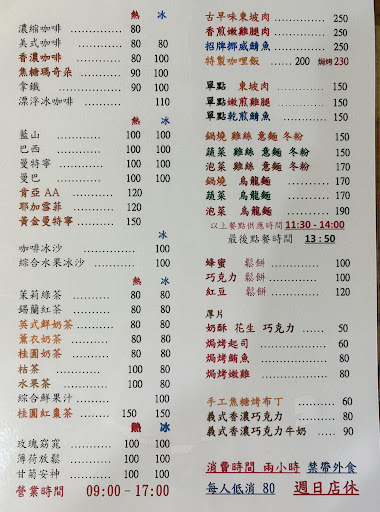 熱 冰
濃縮咖啡 ........... 80
美式咖啡 ........... 80 80
香濃咖啡 ........... 80 100
焦糖瑪奇朵 ....... 90 100
拿鐵 ................. 90 100
漂浮冰咖啡 ........ 110
熱 冰
藍山 ........... 100 100
巴西 ........... 100 100
曼特寧 ........ 100 100
曼巴 ........... 100 100
肯亞 AA ........ 120
耶加雪菲 ........ 120
黃金曼特寧 ..... 150
冰
咖啡冰沙 ........ 100
綜合水果冰沙 ...... 100
熱 冰
茉莉綠茶 ........... 80 80
錫蘭紅茶 ........... 80 80
英式鮮奶茶 ........ 80 80
薰衣奶茶 ........... 80 80
桂圓奶茶 ........... 80 80
桔茶 ................. 80 80
水果茶 .............. 100 80
綜合鮮果汁 ........ 100
桂圓紅棗茶 ..... 150 150
熱 冰
玫瑰窈窕 ........ 100 100
薄荷放鬆 ........ 100 100
甘菊安神 ........ 100 100
營業時間 09:00 - 17:00
古早味東坡肉 ........... 250
香煎嫩雞腿 ........... 250
招牌挪威鯖魚 ........... 250
特製咖哩飯 ...... 200 焗烤 230
單點 東坡肉 ........... 190
單點 嫩煎雞腿 ........ 190
單點 乾煎鯖魚 ........ 190
鍋燒 雞絲 意麵 冬粉 ..... 150
蔬菜 雞絲 意麵 冬粉 ..... 170
泡菜 雞絲 意麵 冬粉 ..... 170
鍋燒 烏龍麵 ........... 170
蔬菜 烏龍麵 ........... 190
泡菜 烏龍麵 ........... 190
以上餐點供應時間 11:30 - 14:00
最後點餐時間 13 : 50
蜂蜜 鬆餅 ........... 100
巧克力 鬆餅 ........... 100
紅豆 鬆餅 ........... 120
厚片
奶酥 花生 巧克力 ..... 50
焗烤起司 ........... 60
焗烤鮪魚 ........... 80
焗烤嫩雞 ........... 80
手工焦糖烤布丁 ........ 60
義式香濃巧克力 ........ 80
義式香濃巧克力牛奶 ..... 90
消費時間 兩小時 禁帶外食
每人低消 80 週日店休